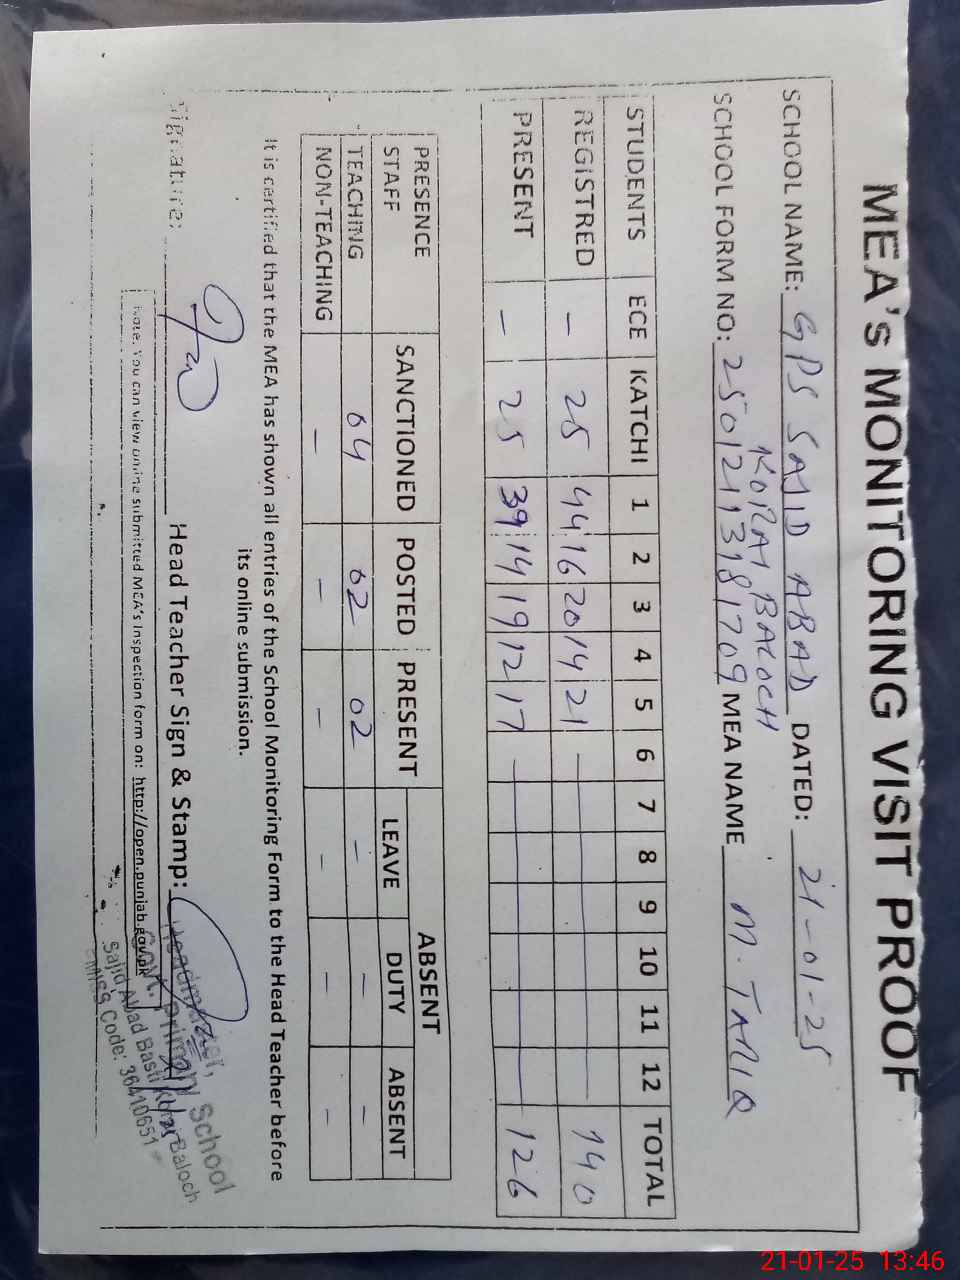 MEA's MONITORING VISIT PROOF
SCHOOL NAME: GPS SAJID ABAD DATED: 21-01-25
KORAI BALOCH
SCHOOL FORM NO: 25012113181709 MEA NAME M. TARIQ
STUDENTS ECE KATCHI 1 2 3 4 5 6 7 8 9 10 11 12 TOTAL
REGISTRED - 25 44 16 20 14 21 - 140
PRESENT - 25 39 14 19 12 17 - 126
PRESENCE SANCTIONED POSTED PRESENT ABSENT
STAFF LEAVE DUTY ABSENT
TEACHING 04 02 02 - - -
NON-TEACHING - - - - - -
It is certified that the MEA has shown all entries of the School Monitoring Form to the Head Teacher before
its online submission.
Signature: Head Teacher Sign & Stamp:
Headmaster,
Govt. Primary School
Sajid Abad Basti Baloch
EMIS Code: 36410651
Note: You can view online submitted MEA's Inspection form on: http://open.punjab.gov.pk
21-01-25 13:46